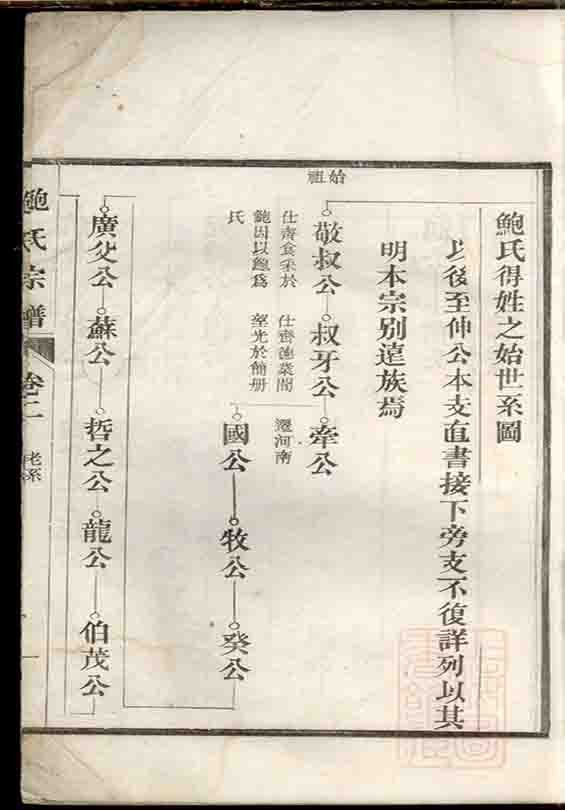 鮑氏得姓之始世系圖
以後至仲公本支直書接下旁支不復詳列以其
明本宗別遠族焉
始祖
敬叔公
仕齊食采於
鮑因以鮑爲
氏
叔牙公
仕齊
望光於簡册
牽公
遷河南
國公
牧公
癸公
廣父公
蘇公
哲之公
龍公
伯茂公
鮑氏宗譜
卷二